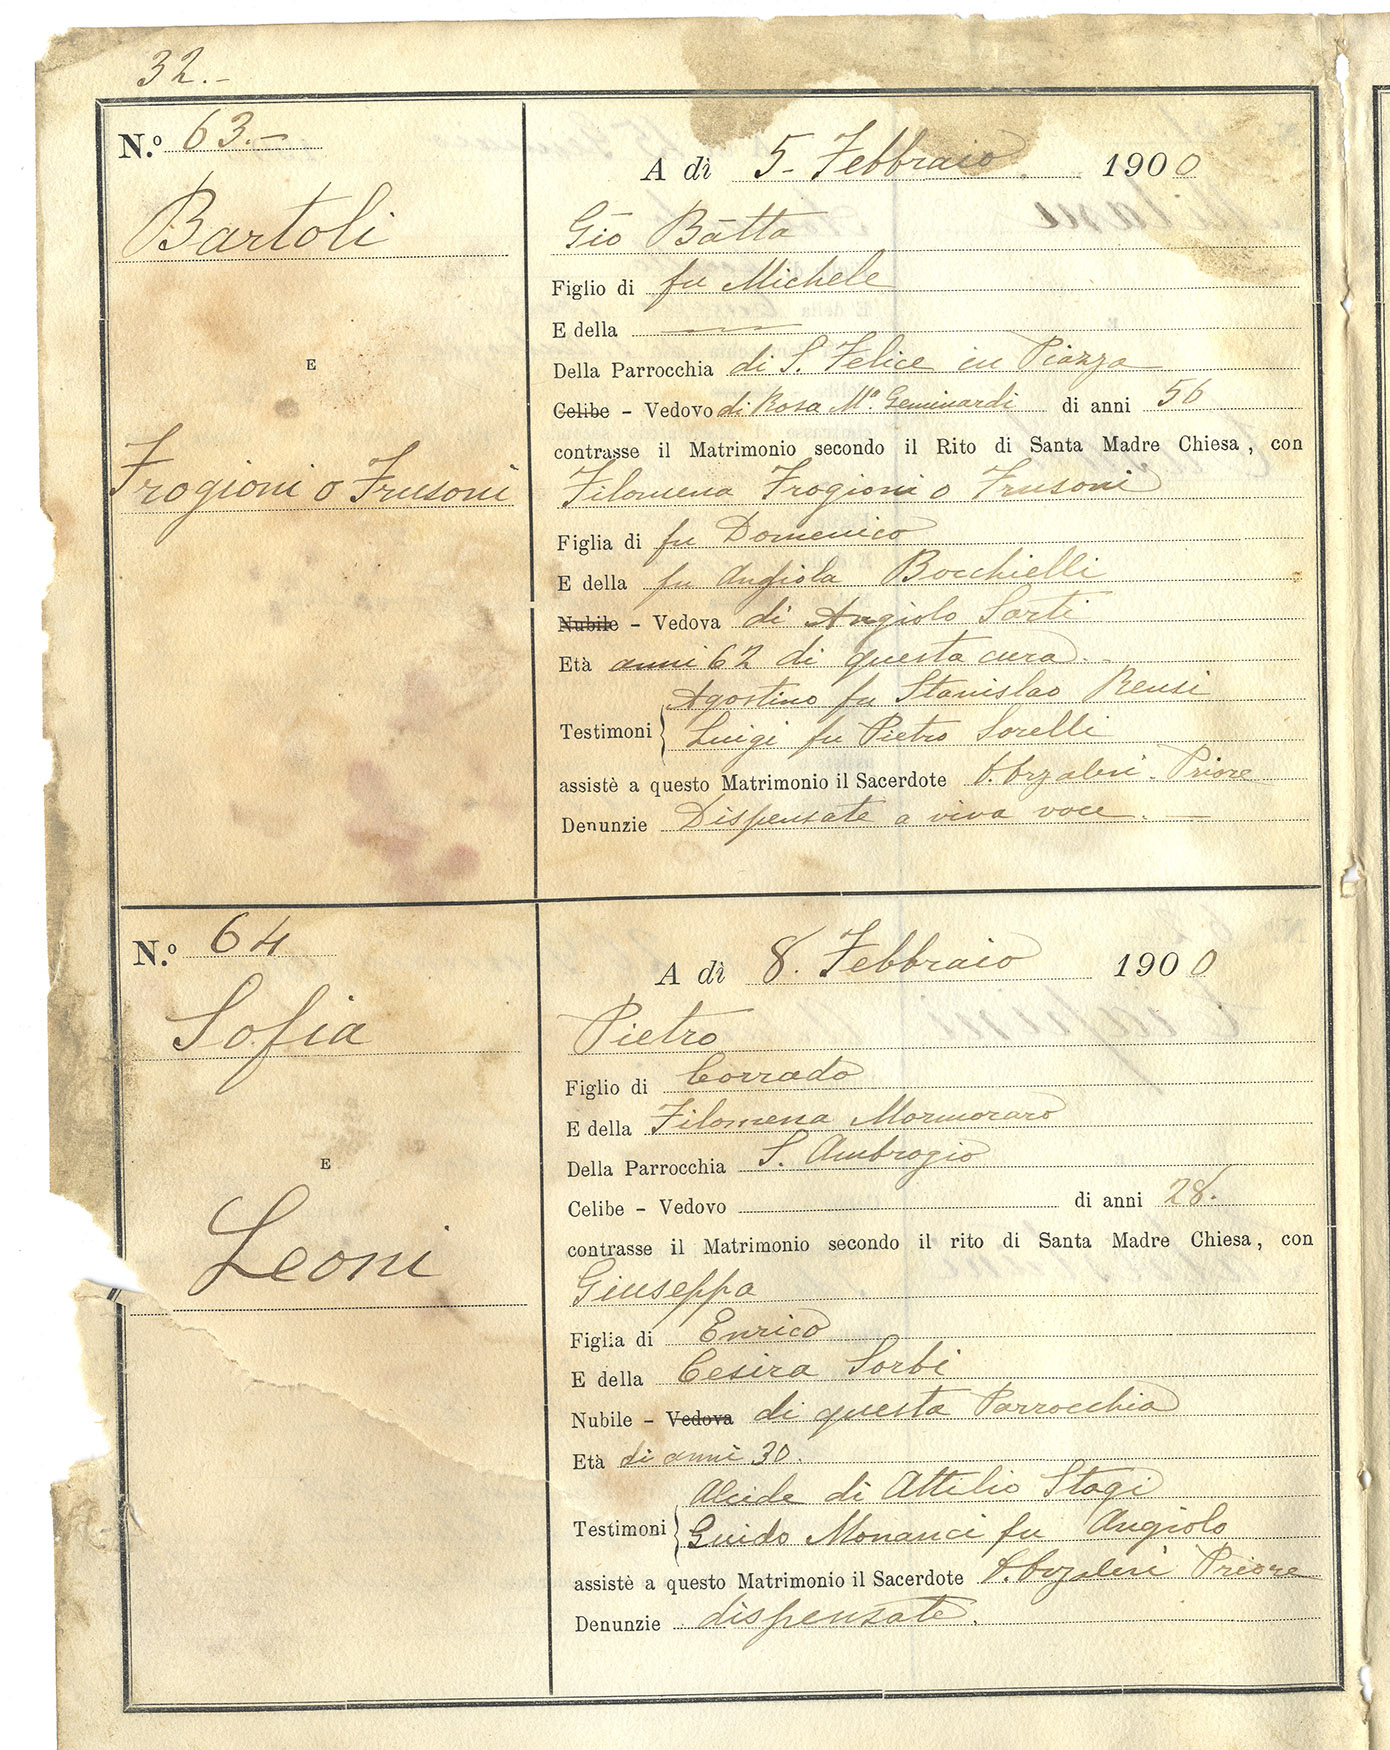 32.-
N.o 63.-
Bartoli
E
Frogioni o Frusoni
A dì 5- Febbraio 1900
Gio Batta
Figlio di fu Michele
E della
Della Parrocchia di S. Felice in Piazza
Celibe - Vedovo di Rosa Ma. Geminardi di anni 56
contrasse il Matrimonio secondo il Rito di Santa Madre Chiesa, con
Filomena Frogioni o Frusoni
Figlia di fu Domenico
E della fu Angiola Bocchielli
Nubile - Vedova di Angiolo Sarti
Età anni 62 di questa cura.
Agostino fu Stanislao Rensi
Testimoni
Luigi fu Pietro Sorelli
assistè a questo Matrimonio il Sacerdote Priore
Denunzie Dispensate a viva voce.
N.o 64
Sofia
E
Leoni
A dì 8. Febbraio 1900
Pietro
Figlio di Corrado
E della Filomena Mormoraro
Della Parrocchia S. Ambrogio
Celibe - Vedovo di anni 28.
contrasse il Matrimonio secondo il rito di Santa Madre Chiesa, con
Giuseppa
Figlia di Enrico
E della Cesira Sorbi
Nubile - Vedova di questa Parrocchia
Età di anni 30.
Alcide di Attilio Stagi
Testimoni
Guido Monanci fu Angiolo
assistè a questo Matrimonio il Sacerdote Priore
Denunzie dispensate.